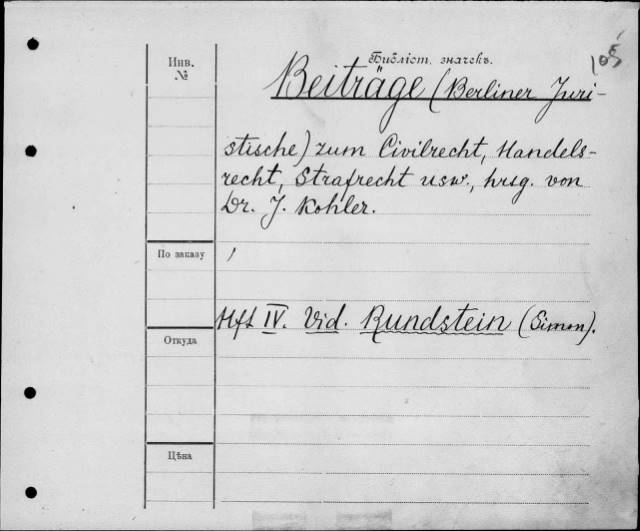 Инв.
№
Библіот. значекъ.
Beiträge (Berliner Juri-
stische) zum Civilrecht, Handels-
recht, Strafrecht usw., hrsg. von
Dr. J. Kohler.
По заказу
Hft IV. Vid. Rundstein (Simon).
Откуда
Цѣна